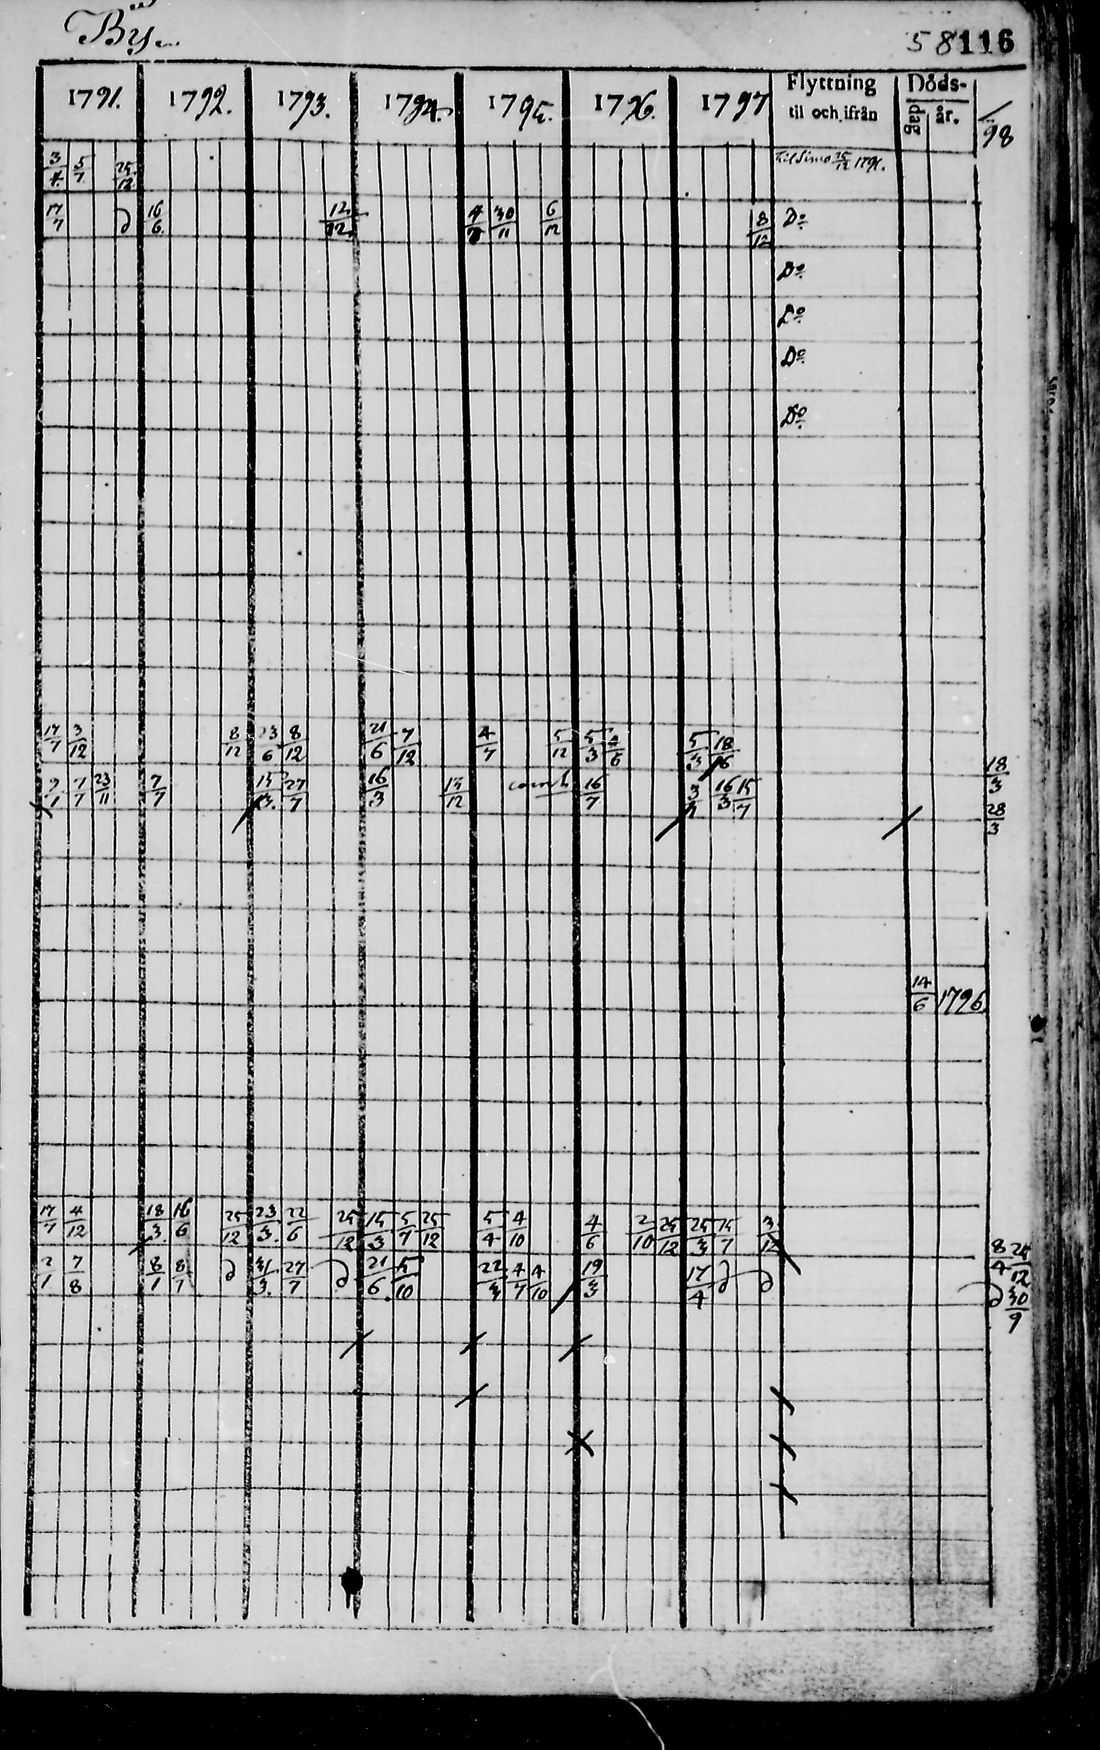 By.
58 116
1791. 1792. 1793. 1794. 1795. 1796. 1797 Flyttning til och ifrån Döds- dag år. /98
3/4 5/7 25/12 Til Simo 25/12 1791.
17/7 ∂ 16/6 12/12 4/7 30/11 6/12 8/12 Do
Do
Do
Do
Do
17/7 3/12 8/12 23/6 8/12 21/6 7/12 4/7 5/12 5/3 4/6 5/3 18/6 18/3
2/1 7/7 23/11 7/7 15/3 27/7 16/3 13/12 16/7 3/1 16/3 15/7 28/3
14/6 1796.
17/7 4/12 18/3 16/6 25/12 23/3 22/6 25/12 15/3 5/7 25/12 5/4 4/10 4/6 2/10 26/12 25/3 15/7 3/12 8/4 25/12
2/1 7/8 8/1 8/7 ∂ 31/3 27/7 ∂ 21/6 5/10 22/3 4/7 4/10 19/3 17/4 ∂ ∂ ∂ 30/9